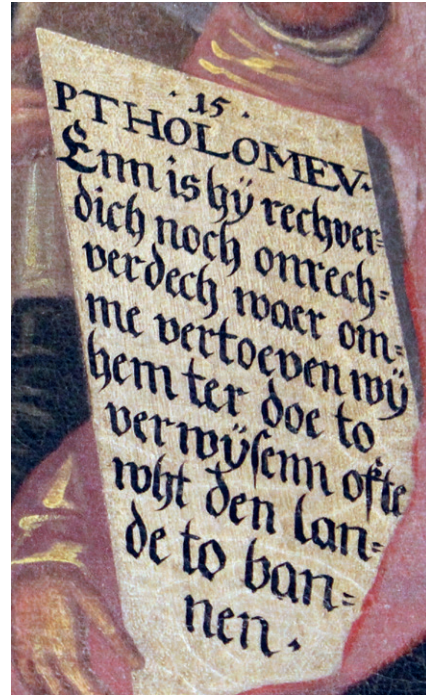 · 15 ·
PTHOLOMEV·
Enn is hÿ rechver=
dich noch onrech=
verdech waer om=
me vertoeven wÿ
hem ter doe to
verwÿsenn ofte
wht den lan=
de to ban=
nen ·